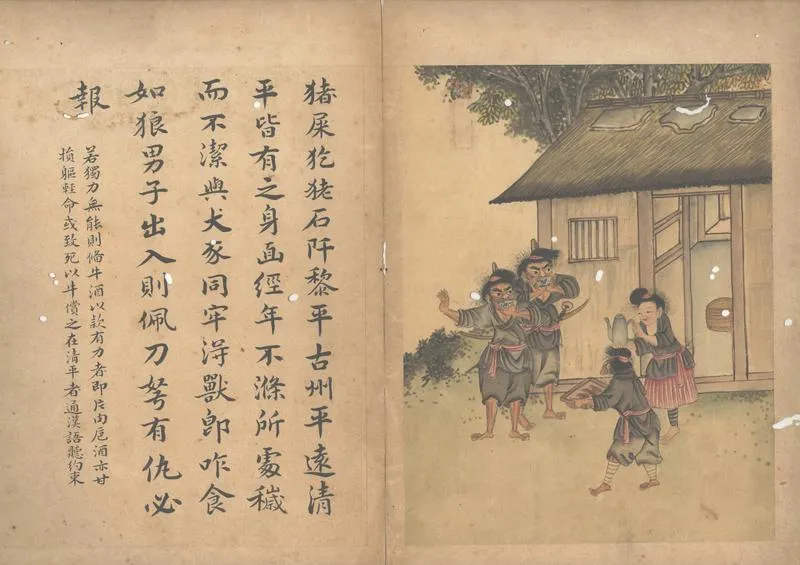 猪屎犵狫石阡黎平古州平遠清
平皆有之身面經年不滌所處穢
而不潔與犬豕同牢淂獸即咋食
如狼男子出入則佩刀弩有仇必
報
若獨力無能則俻牛酒以款有力者即片肉巵酒亦甘
損軀輕命或致死以牛償之在清平者通漢語聽約束